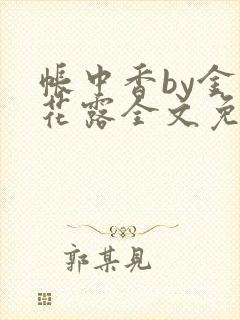 帐中香by金
花露全文免
郭某见